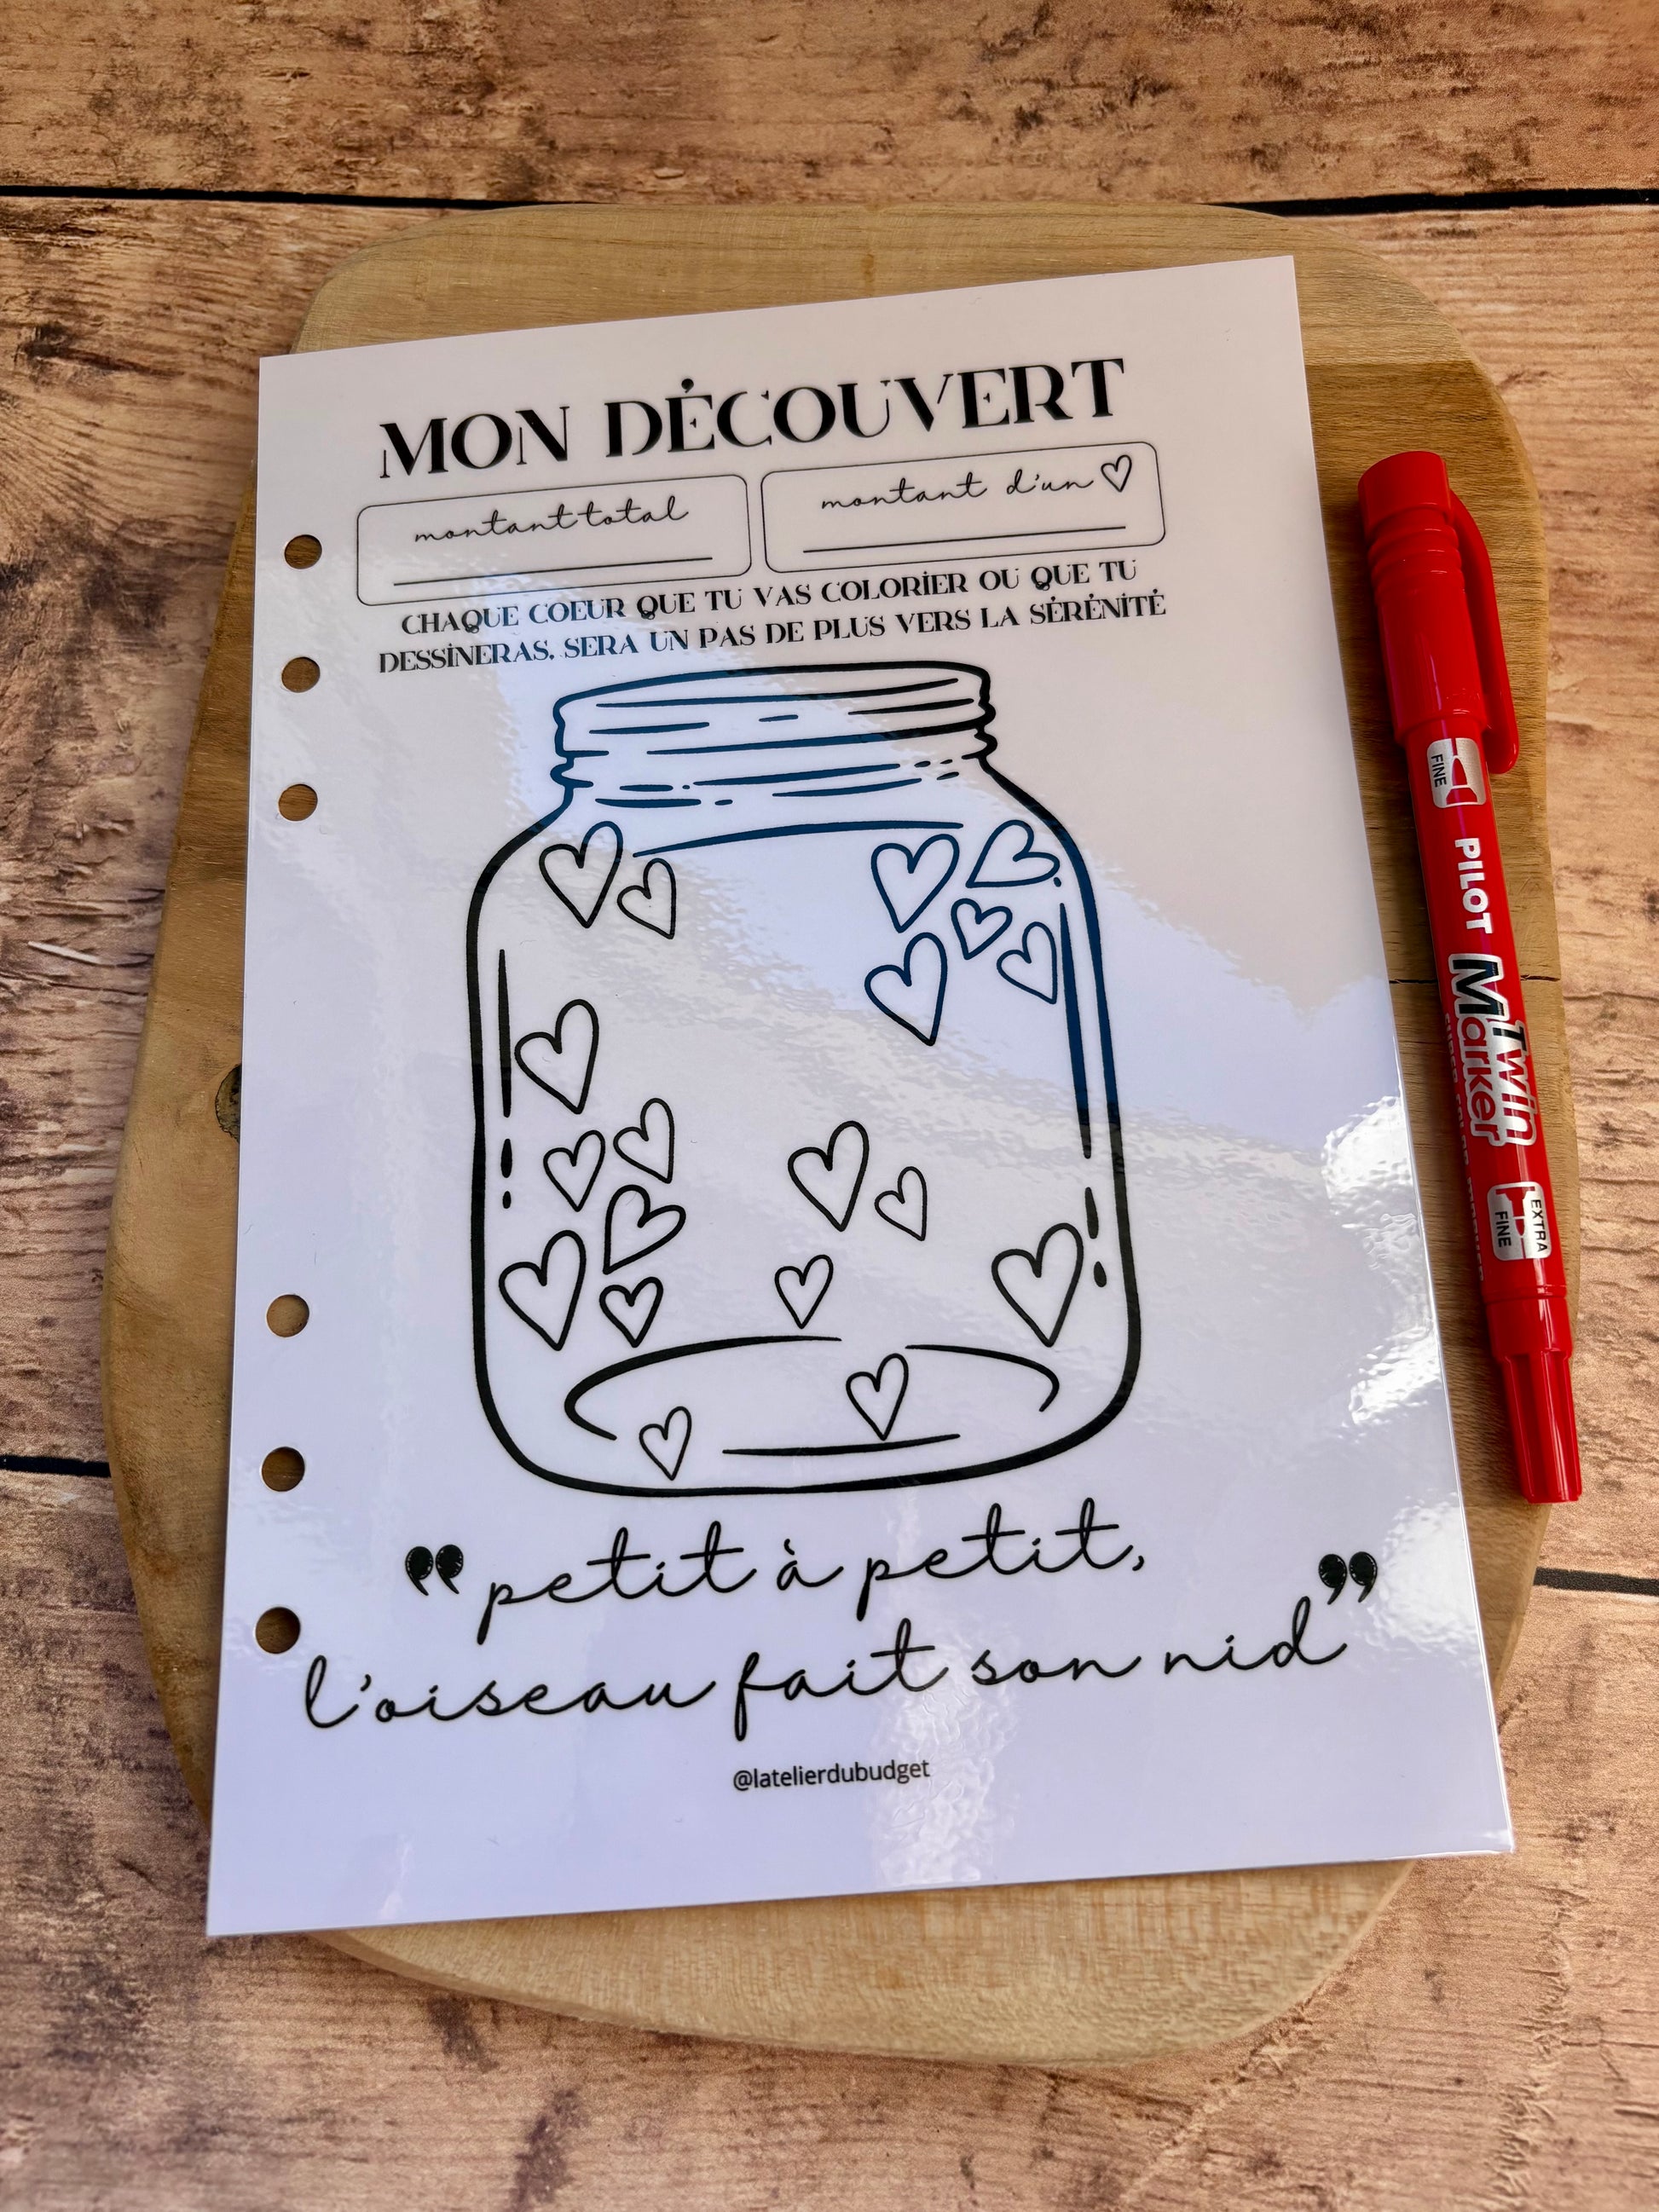 MON DÉCOUVERT
montant total
montant d'un
CHAQUE COEUR QUE TU VAS COLORIER OU QUE TU
DESSINERAS, SERA UN PAS DE PLUS VERS LA SÉRÉNITÉ
❞ petit à petit,
l'oiseau fait son nid ❞
@latelierdubudget
FINE
PILOT
Twin
Marker
EXTRA
FINE